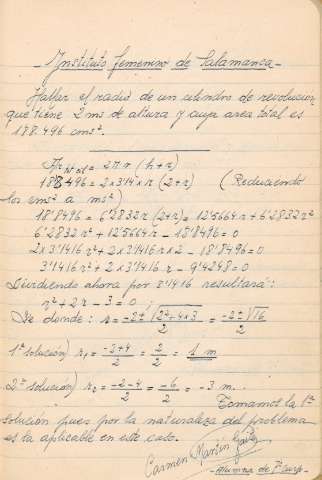 - Instituto femenino de Salamanca -
Hallar el radio de un cilindro de revolucion
que tiene 2 ms de altura y cuya area total es
188.496 cms².
A total = 2πr (h+r)
188496 = 2x3'14xr (2+r) (Reduciendo
los cms² a ms²)
18'8496 = 6'2832r (2+r) = 12'5664r + 6'2832r²
6'2832r² + 12'5664r - 18'8496 = 0
2x3'1416r² + 2x3'1416rx2 - 18'8496 = 0
3'1416r² + 2x3'1416r - 9'4248 = 0
Dividiendo ahora por 3'1416 resultará:
r² + 2r - 3 = 0
De donde: r = -2±√2²+4x3 / 2 = -2±√16 / 2
1ª solución) r₁ = -2+4 / 2 = 2/2 = 1 m
2ª solución) r₂ = -2-4 / 2 = -6/2 = -3 m.
Tomamos la 1ª
solución pues por la naturaleza del problema
es la aplicable en este caso.
Carmen Martín Gaite
- Alumna de 7º curso -